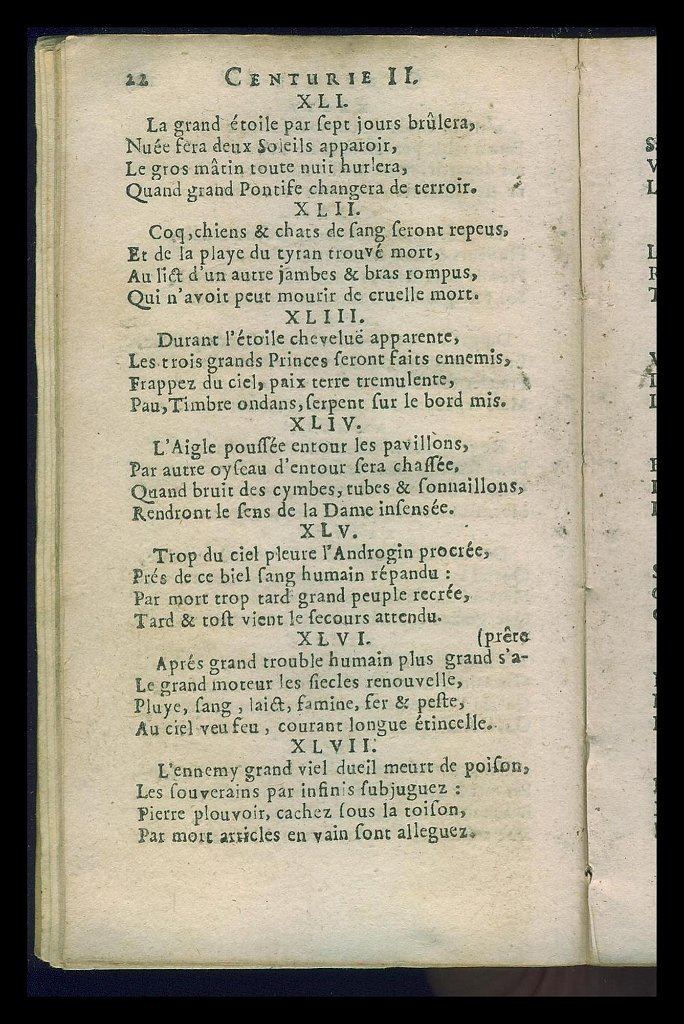 22 CENTURIE II.
XLI.
La grand étoile par ſept jours brûlera,
Nuée fera deux Soleils apparoir,
Le gros mâtin toute nuit hurlera,
Quand grand Pontife changera de terroir.
XLII.
Coq, chiens & chats de ſang ſeront repeus,
Et de la playe du tyran trouvé mort,
Au lict d'un autre jambes & bras rompus,
Qui n'avoit peut mourir de cruelle mort.
XLIII.
Durant l'étoile cheveluë apparente,
Les trois grands Princes ſeront faits ennemis,
Frappez du ciel, paix terre tremulente,
Pau, Timbre ondans, ſerpent ſur le bord mis.
XLIV.
L'Aigle pouſſée entour les pavillons,
Par autre oyſeau d'entour ſera chaſſée,
Quand bruit des cymbes, tubes & ſonnaillons,
Rendront le ſens de la Dame inſensée.
XLV.
Trop du ciel pleure l'Androgin procrée,
Prés de ce biel ſang humain répandu :
Par mort trop tard grand peuple recrée,
Tard & toſt vient le ſecours attendu.
XLVI. (prête
Aprés grand trouble humain plus grand s'a-
Le grand moteur les ſiecles renouvelle,
Pluye, ſang, laict, famine, fer & peſte,
Au ciel veu feu, courant longue étincelle.
XLVII.
L'ennemy grand viel dueil meurt de poiſon,
Les ſouverains par infinis ſubjuguez :
Pierre plouvoir, cachez ſous la toiſon,
Par mort articles en vain ſont alleguez.